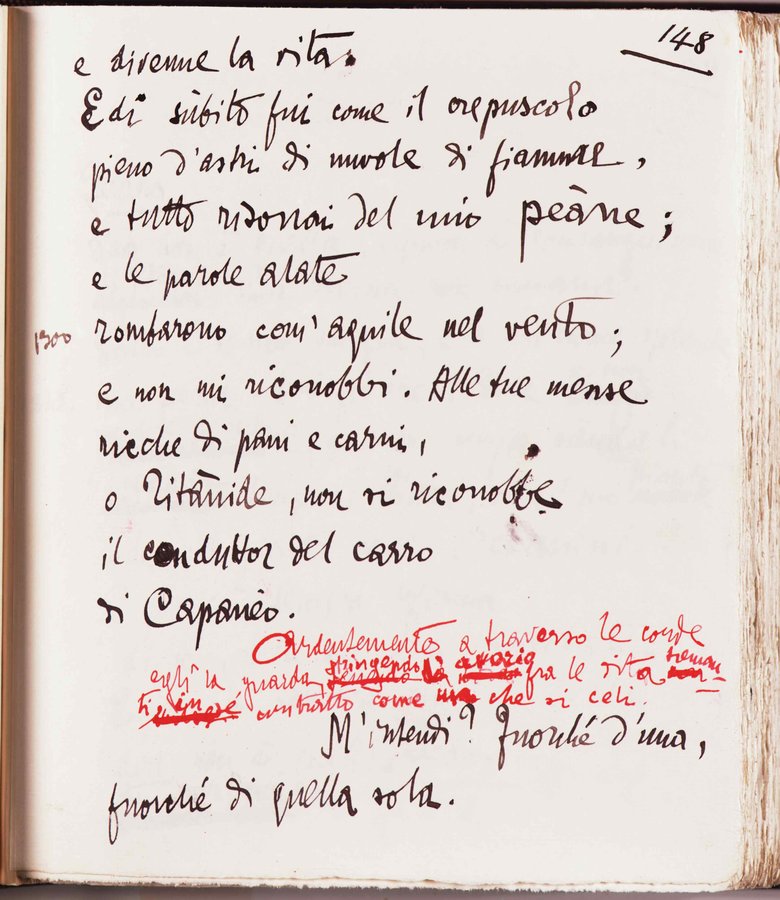 148
e divenne la vita.
E di sùbito fui come il crepuscolo
pieno d'astri di nuvole di fiamme,
e tutto risonai del mio peàne;
e le parole alate
1300 rombarono com' aquile nel vento;
e non mi riconobbi. Alle tue mense
ricche di pani e carni,
o Titànide, non si riconobbe
il conduttor del carro
di Capanèo.
Ardentemente a traverso le corde
egli la guarda, stringendo l' avorio fra le dita treman-
ti, in contratto come che si celi.
M'intendi? Fuorché d'una,
fuorché di quella sola.